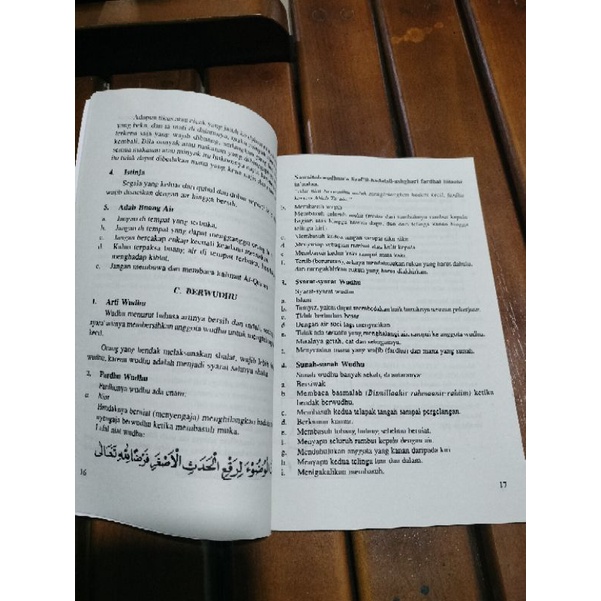 Adapun tikus atau cicak yang jatuh ke dalam
yang beku dan ia mati di dalamnya, maka
terkena saja yang wajib dibuang,
kembali. Bila minyak atau makanan yang
semua makanan atau minyak itu hukumnya najis,
itu tidak dapat dibedakan mana yang kena najis
4. Istinja
Segala yang keluar dari qubul dan dubur seperti
wajib disucikan dengan air hingga bersih.
5. Adab Buang Air
a. Jangan di tempat yang terbuka.
b. Jangan di tempat yang dapat mengganggu orang
c. Jangan bercakap-cakap kecuali keadaan
d. Kalau terpaksa buang air di tempat terbuka,
menghadap kiblat.
e. Jangan membawa dan membaca kalimat Al-Qur'an
C. BERWUDHU
1. Arti Wudhu
Wudhu menurut bahasa artinya bersih dan indah,
syara' artinya membersihkan anggota wudhu untuk
kecil.
Orang yang hendak melaksanakan shalat, wajib
wudhu, karena wudhu adalah menjadi syarat sahnya shalat.
2. Fardhu Wudhu
Fardhunya wudhu ada enam:
a. Niat
Hendaknya berniat (menyengaja) menghilangkan hadas
menyengaja berwudhu ketika membasuh muka.
Lafal niat wudhu:
الْوُضُوْءَ لِرَفْعِ الْحَدَثِ الْأَصْغَرِ فَرْضًا لِلّٰهِ تَعَالٰى
16
Nawaitul-wudhuua liraf'il-hadatsil-ashghari fardhal lillaahi
ta'aalaa.
b. Membasuh muka
c. Membasuh kedua tangan sampai siku-siku.
d. Menyapu sebagian rambut atau kulit kepala
e. Membasuh kedua kaki sampai mata kaki
f. Tertib (berurutan),
3. Syarat-syarat Wudhu
Syarat-syarat wudhu
a. Islam
b. Tamyiz, yakni dapat membedakan baik buruknya sesuatu pekerjaan.
c. Tidak berhadas besar
d. Dengan air suci lagi menyucikan
e. Tidak ada sesuatu yang menghalangi air, sampai ke anggota wudhu
Misalnya getah, cat dan sebagainya.
f. Mengetahui mana yang wajib (fardhu) dan mana yang sunah.
4. Sunah-sunah Wudhu
Sunah wudhu banyak sekali, di antaranya
a. Bersiwak
b. Membaca basmalah (Bismillaahir rahmaanir rahiim) ketika
hendak berwudhu.
c. Membasuh kedua telapak tangan sampai pergelangan.
d. Berkumur-kumur.
e. Membasuh lubang hidung sebelum berniat.
f. Menyapu seluruh rambut kepala dengan air.
g. Mendahulukan anggota yang kanan daripada kiri
h. Menyapu kedua telinga luar dan dalam.
i. Menigakalikan membasuh.
17